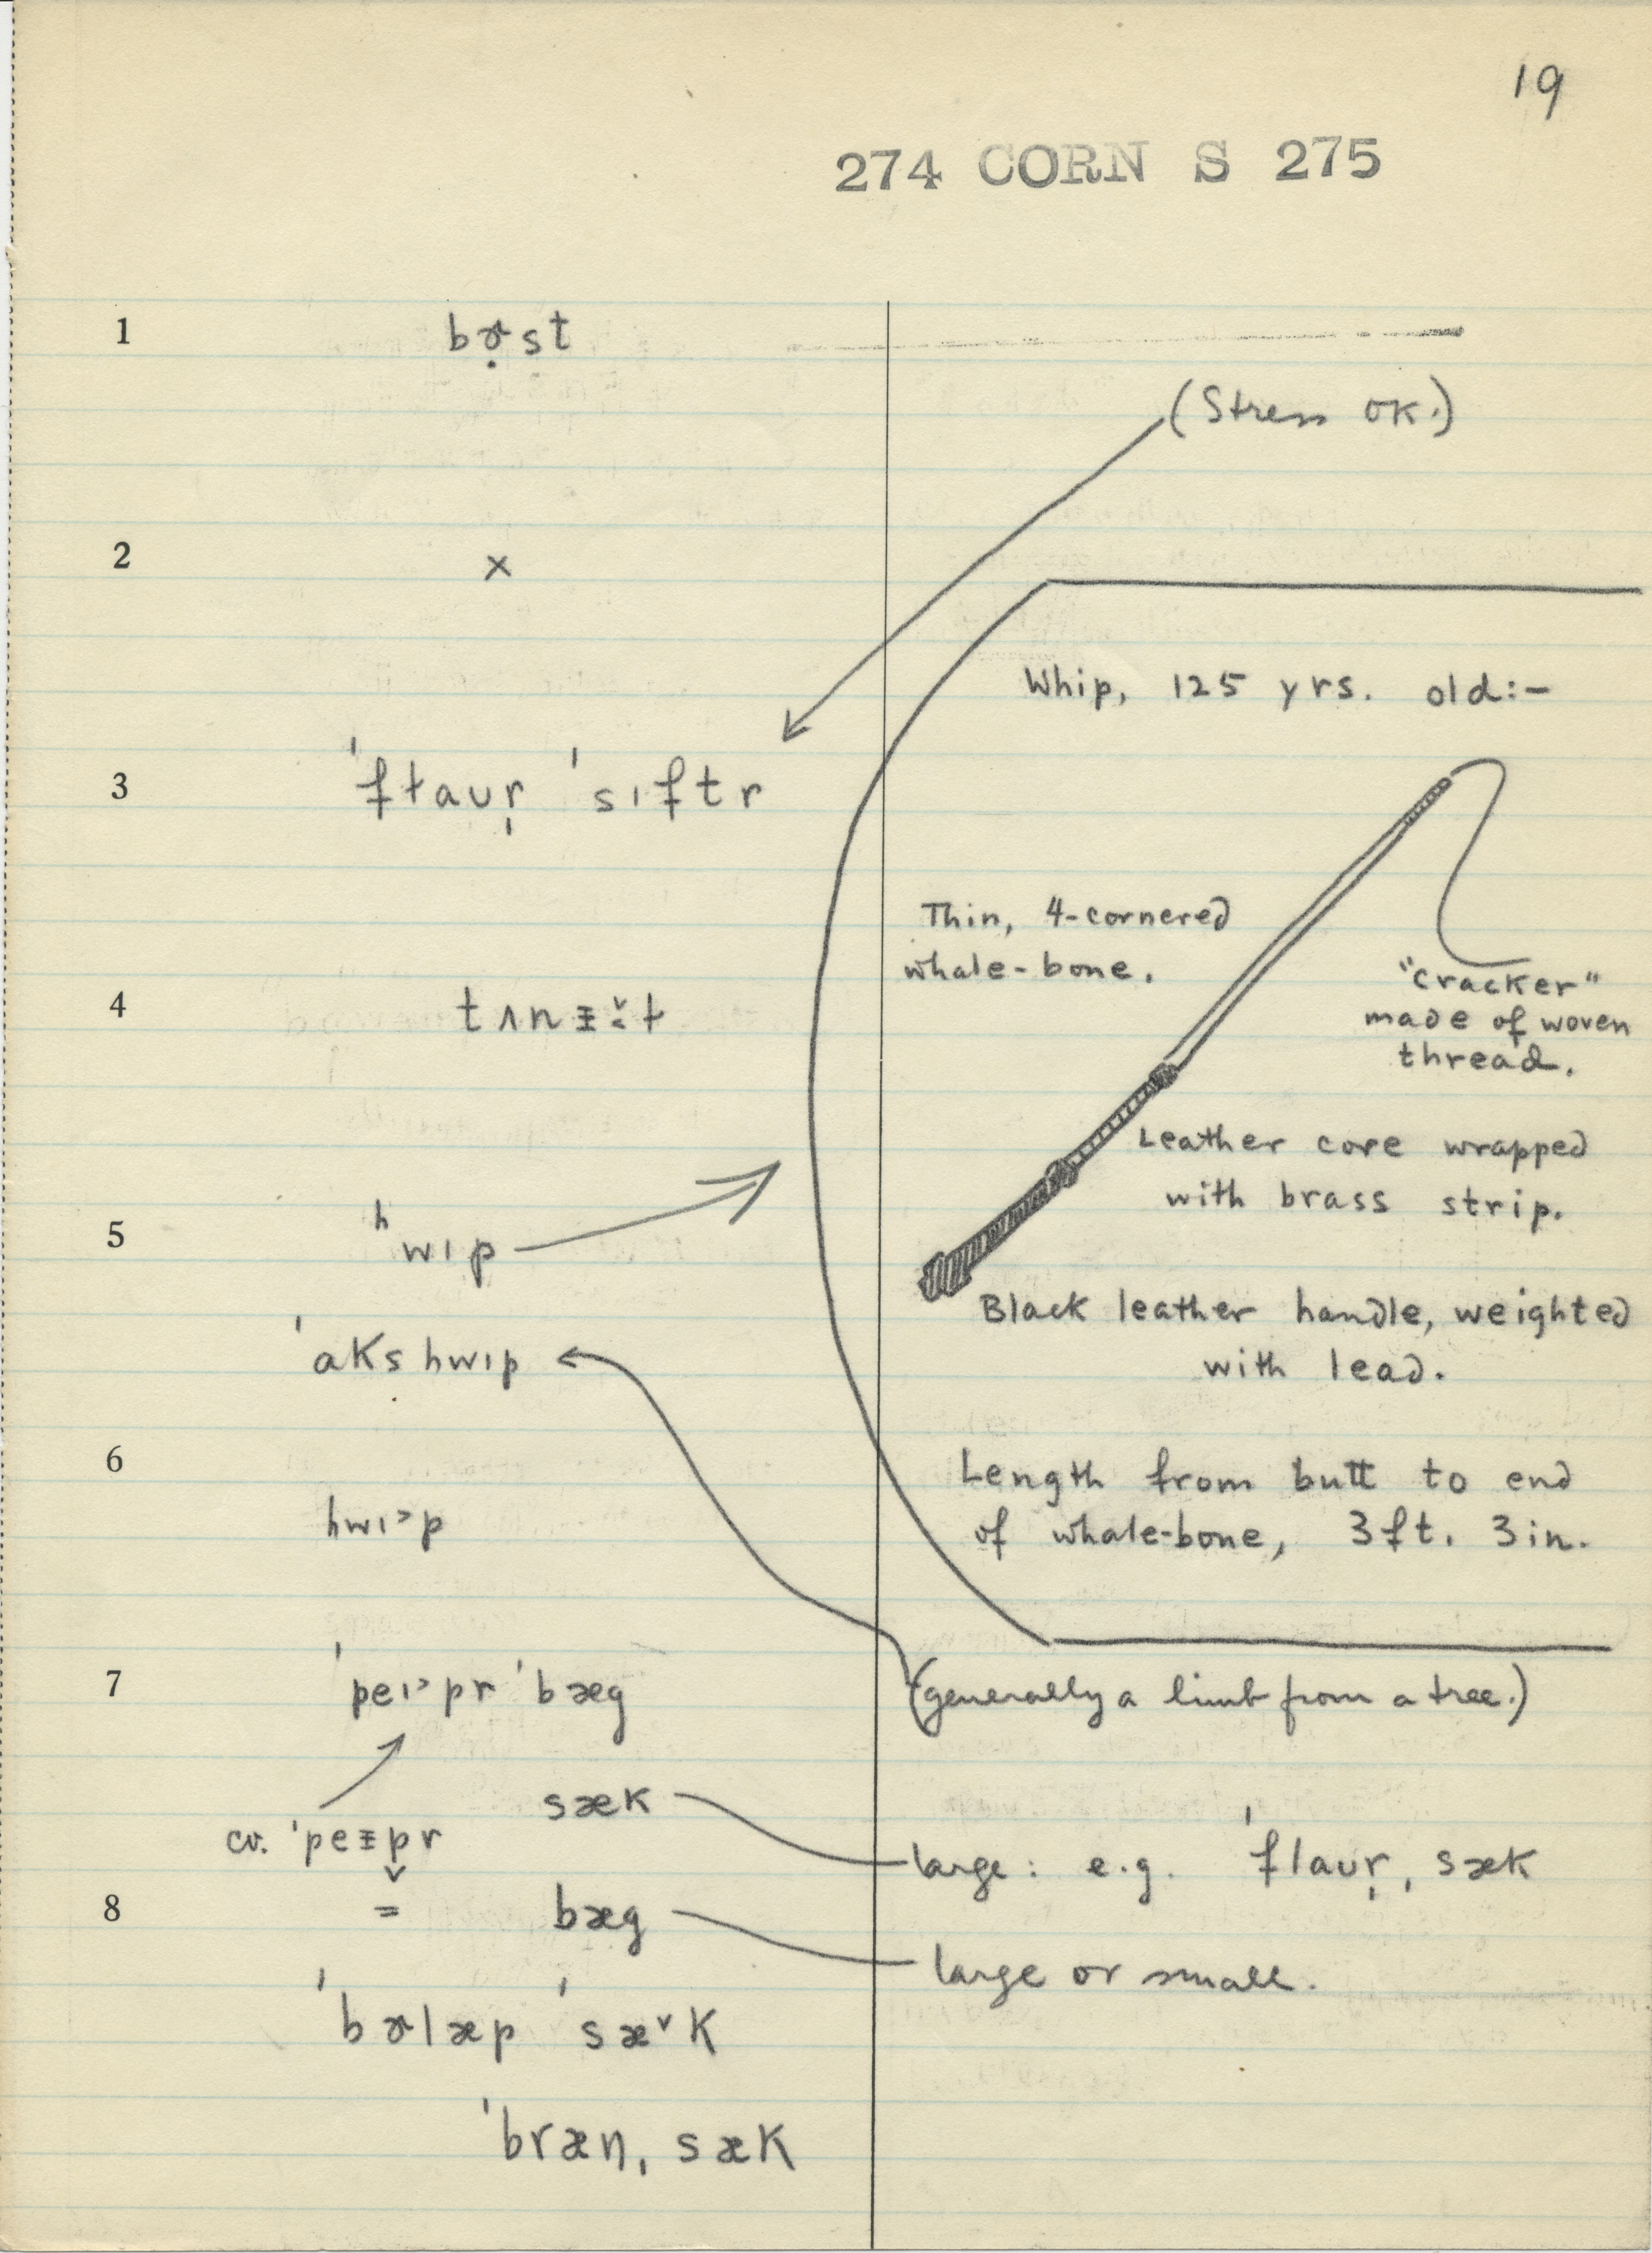 19
274 CORN S 275
1 bɚ̣st
(Stress OK.)
2 x
Whip, 125 yrs. old:-
3 ˈfɫaʊr̩ ˈsɪftr
Thin, 4-cornered
whale-bone.
"cracker"
made of woven
thread.
4
Leather core wrapped
with brass strip.
5 ʰwɪp
Black leather handle, weighted
with lead.
ˈaks hwɪp
6
Length from butt to end
of whale-bone, 3 ft. 3 in.
hwɪ˃p
7 ˈpeɪ˃pr ˈbæg
(generally a limb from a tree.)
sæk
cv. ˈpeɪ̵pr
large: e.g. ˈflaʊr̩ ˌsæk
8 = bæg
large or small.
ˈbɚlæp ˈsæ˅k
ˈbræn ˌsæk